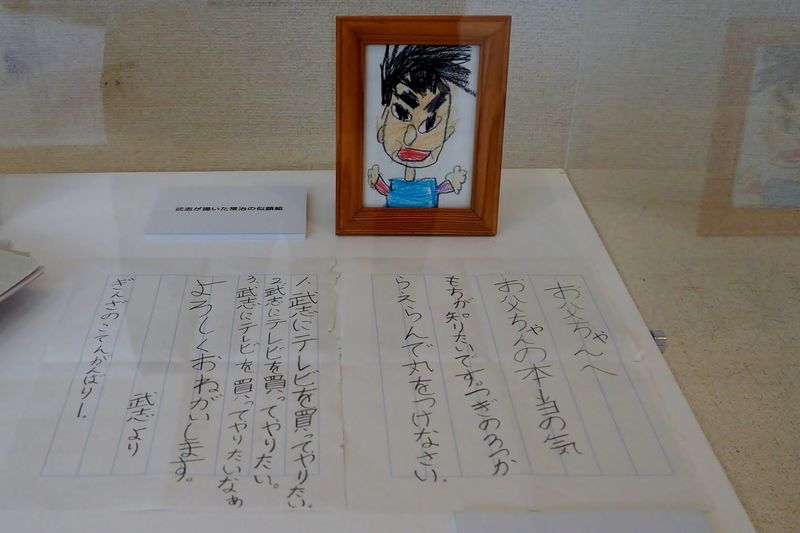 武志が描いた常治の似顔絵
お父ちゃんへ
お父ちゃんの本当の気
もちが知りたいです。つぎの3つか
らえらんで丸をつけなさい。
1、武志にテレビを買ってやりたい。
2、武志にテレビを買ってやりたい。
3、武志にテレビを買ってやりたいなぁ
よろしくおねがいします。
武志より
ざんざのこてんがんばりー。